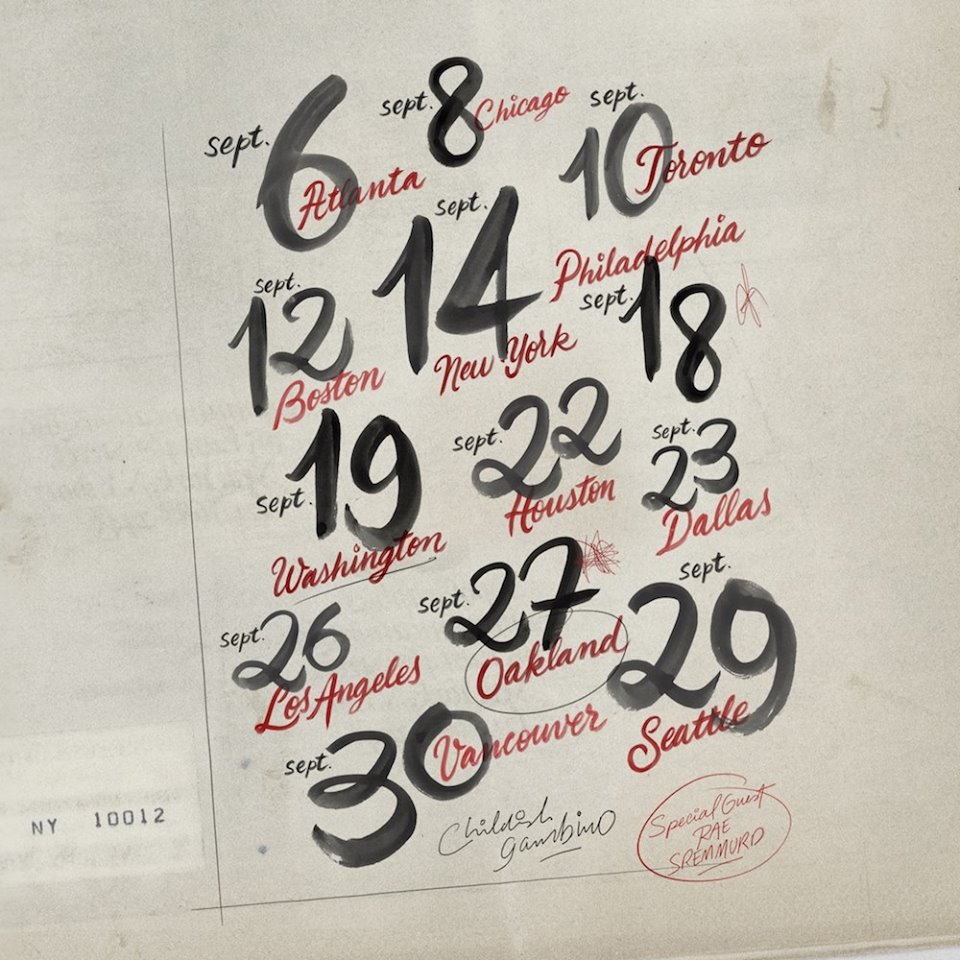 sept. 6 Atlanta
sept. 8 Chicago
sept. 10 Toronto
sept. 12 Boston
sept. 14 New York
Philadelphia sept. 18
sept. 19 Washington
sept. 22 Houston
sept. 23 Dallas
sept. 26 Los Angeles
sept. 27 Oakland
sept. 29 Seattle
sept. 30 Vancouver
NY 10012
Childish
gambino
Special Guest
RAE
SREMMURD